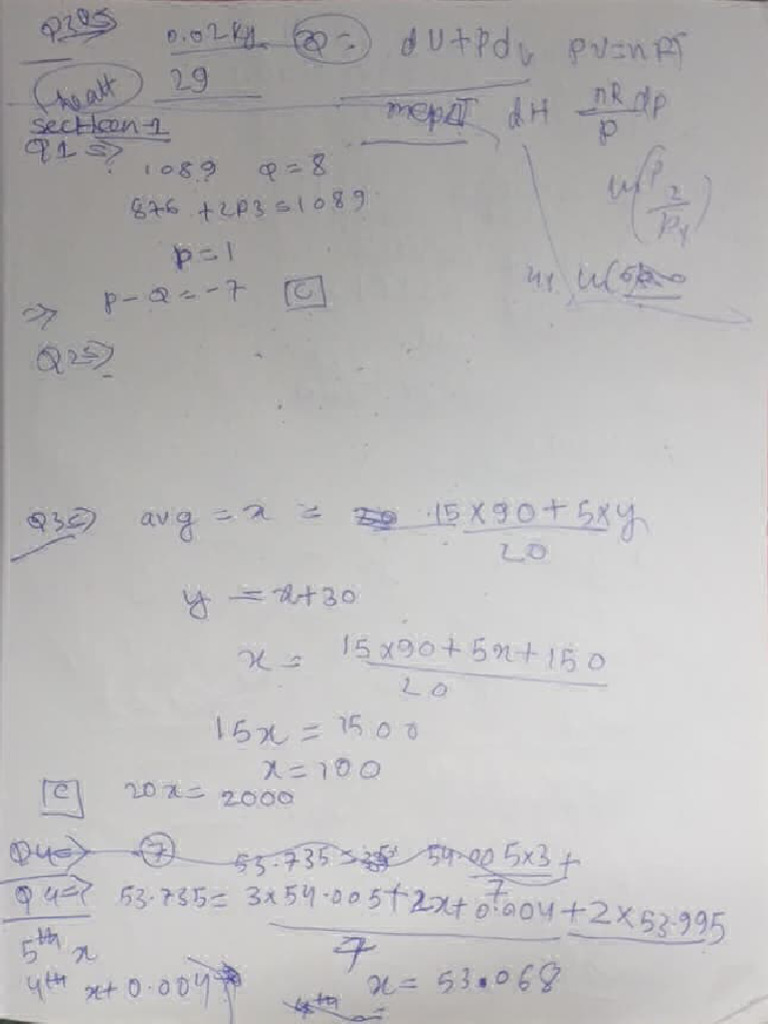 0.02 Kg Q = dU + Pdv PV = nRT
29
heatt mcpΔT dH nR/P dp
Section-1
Q1 => 1089 Q = 8
876 + 2P3 = 1089
P = 1
=> P - Q = -7 [C]
Q2 =>
Q3 => avg = x = 15 x 90 + 5 x y
20
y = x + 30
x = 15 x 90 + 5x + 150
20
15x = 1500
x = 100
[C] 20x = 2000
Q4 => 7 53.735 54.005 x 3 +
7
Q4 => 53.735 = 3 x 54.005 + 2x + 0.004 + 2 x 53.995
7
5th x
4th x + 0.004 x = 53.068